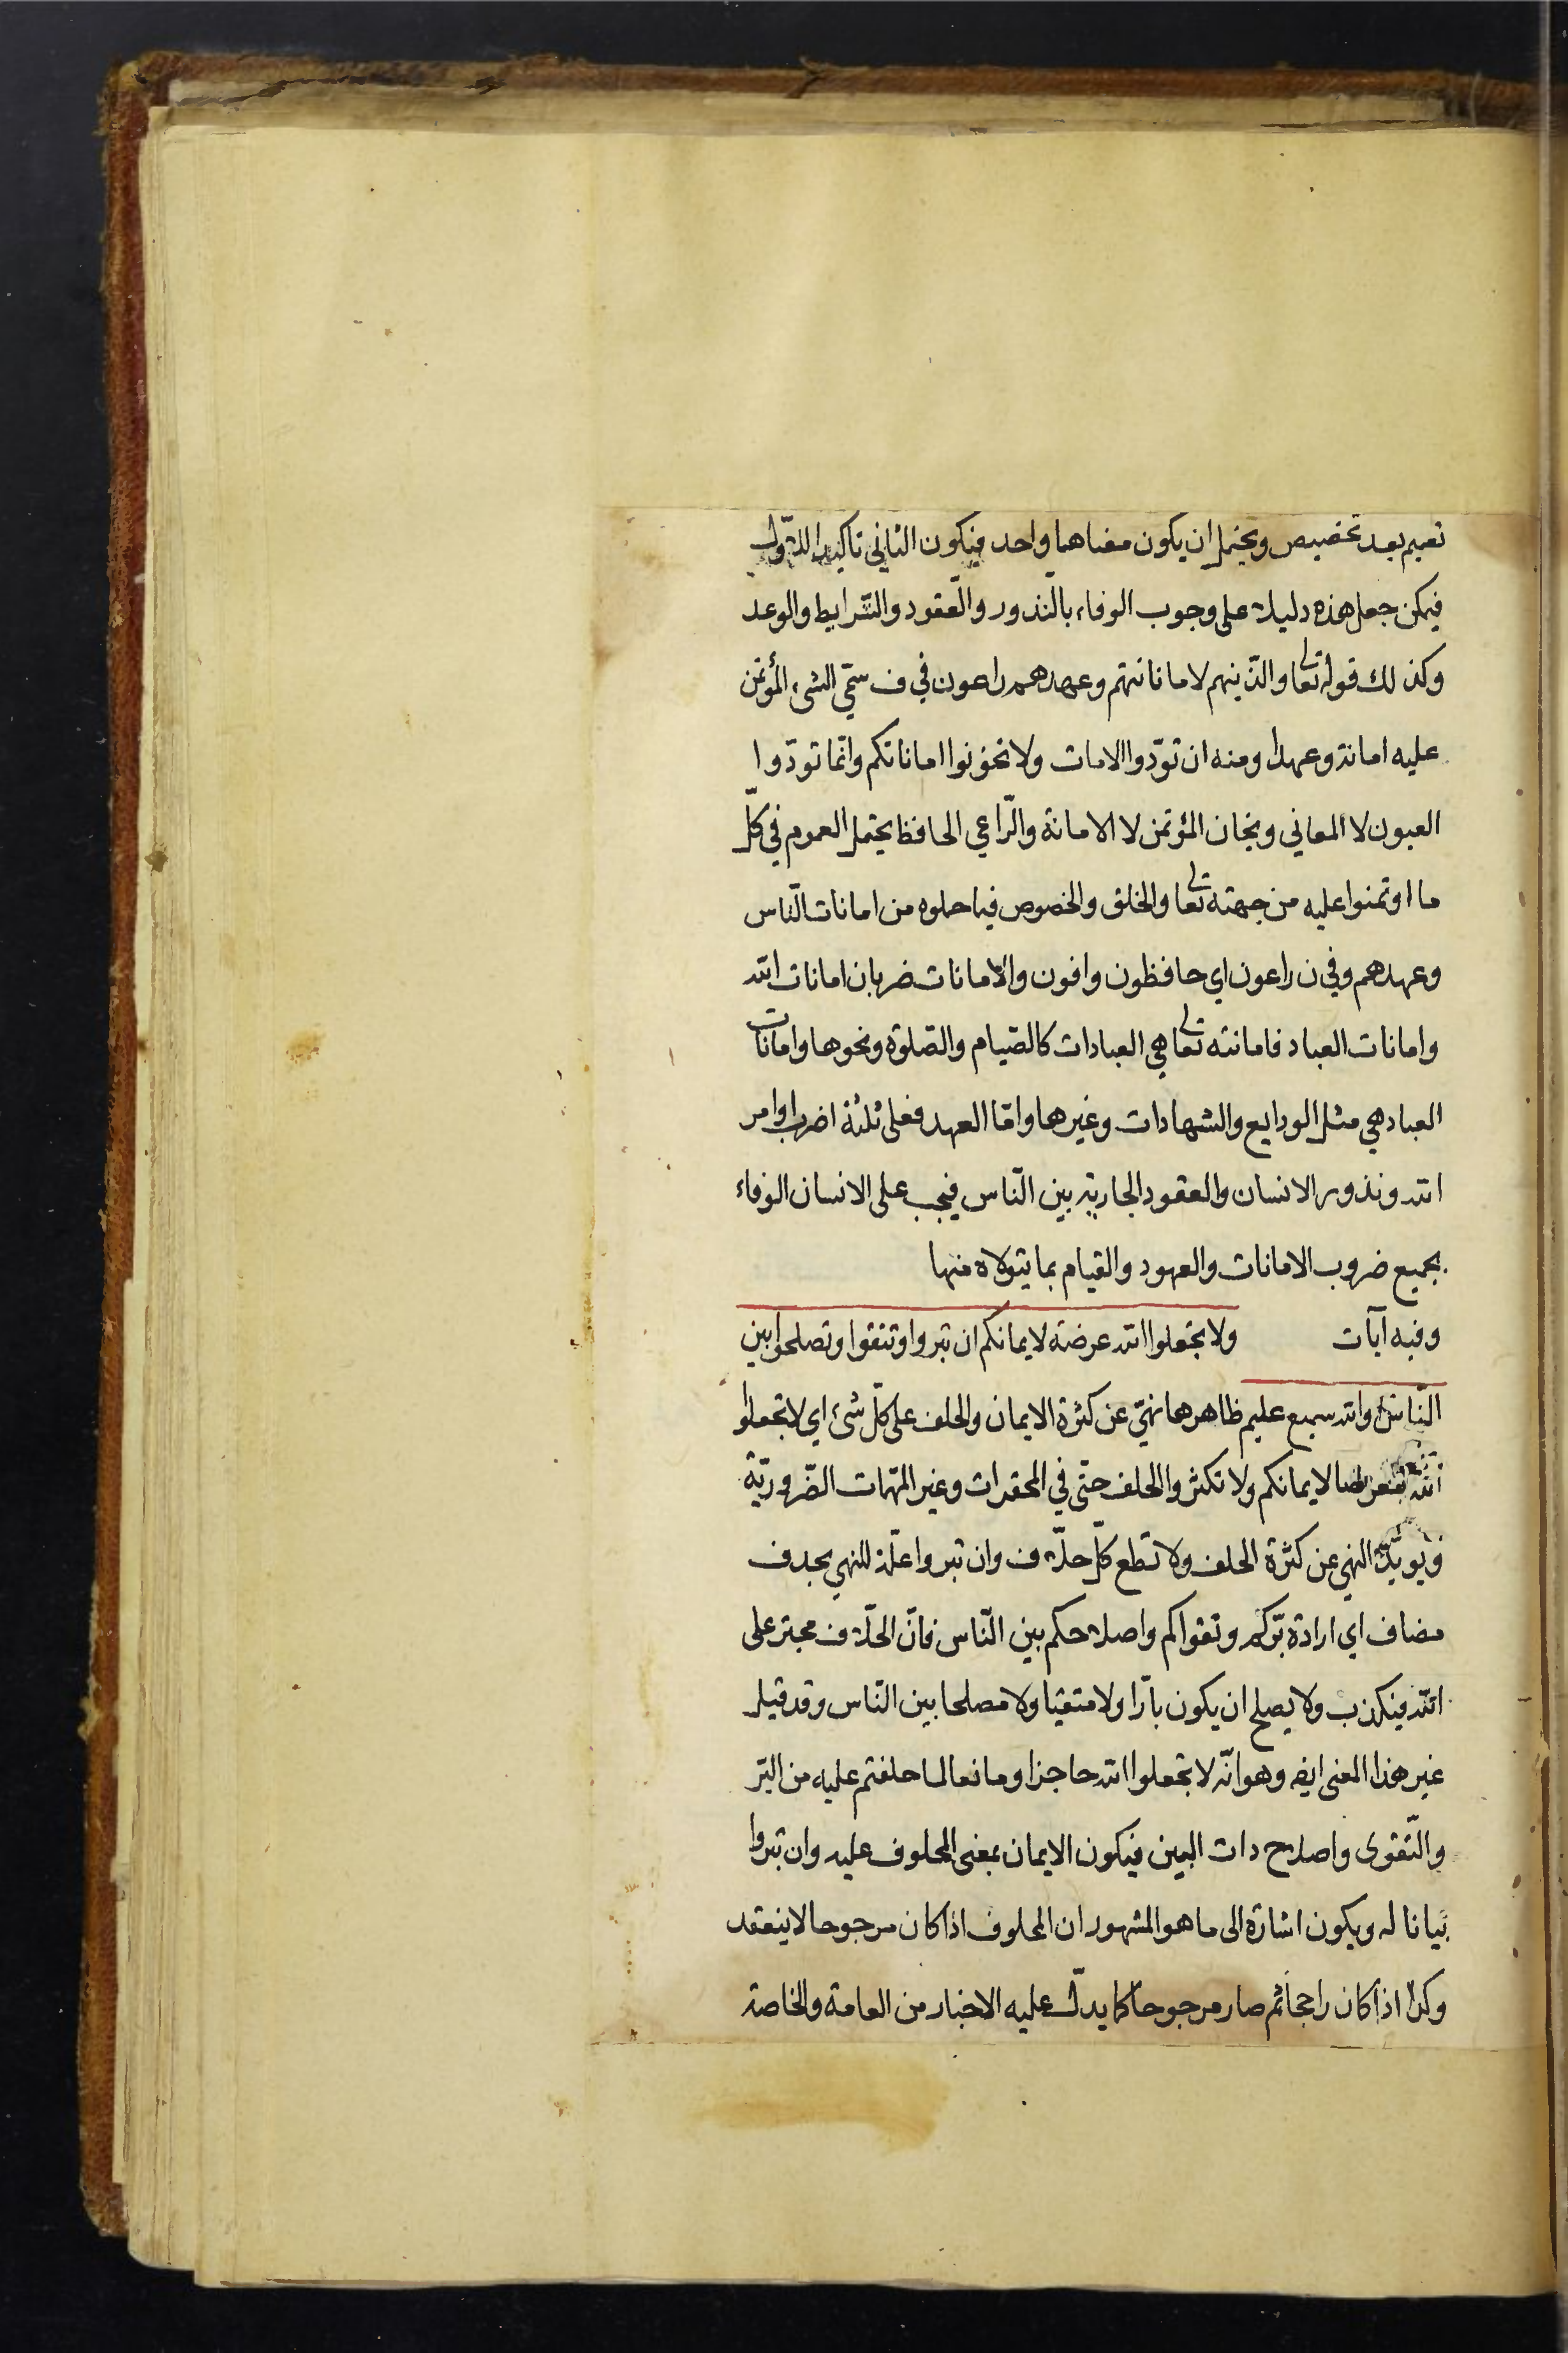 تعيم بعد تخصيص ويحتمل ان يكون معناهما واحد فيكون الثاني تاكيدا للاول
فيمكن جعل هذه دليلا على وجوب الوفاء بالنذور والعقود والشرايط والوعد
وكذلك قوله تعالى والذينهم لاماناتهم وعهدهم راعون في ف سمّي الشيء المؤتمن
عليه امانة وعهدا ومنه ان تودّوا الامات ولا تخونوا اماناتكم وانّما تودّوا
العيون لا المعاني ويخان المؤتمن لا الامانة والرّاعي الحافظ يحتمل العموم في كلّ
ما اوتمنوا عليه من جهته تعالى والخلق والخصوص فيما حملوه من امانات النّاس
وعهدهم وفي ن راعون اي حافظون وافون والامانات ضربان امانات الله
وامانات العباد فامانته تعالى هي العبادات كالصّيام والصّلوة ونحوها وامانات
العباد هي مثل الودايع والشهادات وغيرها وامّا العهد فعلى ثلثة اضراب اوامر
الله ونذور الانسان والعقود الجارية بين النّاس فيجب على الانسان الوفاء
بجميع ضروب الامانات والعهود والقيام بما يتولاه منها
وفيه آيات ولا تجعلوا الله عرضة لايمانكم ان تبروا وتتقوا وتصلحوا بين
النّاس والله سميع عليم ظاهرها نهيّ عن كثرة الايمان والحلف على كلّ شئ اي لا تجعلوا
الله معرضا لايمانكم ولا تكثروا الحلف حتّى في المحقرات وغير المهمات الضّروريّة
ويويّد النهي عن كثرة الحلف ولا تطع كلّ حلّاف وان تبروا علّة للنهي بحذف
مضاف اي ارادة برّكم وتقواكم واصلاحكم بين النّاس فانّ الحلّاف مجتر على
الله فيكذب ولا يصلح ان يكون بارّا ولا متقيا ولا مصلحا بين النّاس وقد قيل
غير هذا المعنى ايضا وهو انّه لا تجعلوا الله حاجزا ومانعا لما حلفتم عليه من البرّ
والتّقوى واصلاح ذات البين فيكون الايمان بمعنى المحلوف عليه وان تبروا
بيانا له ويكون اشارة الى ما هو المشهور ان المحلوف اذا كان مرجوحا لا ينعقد
وكذا اذا كان راجحا ثم صار مرجوحا كما يدلّ عليه الاخبار من العامة والخاصة